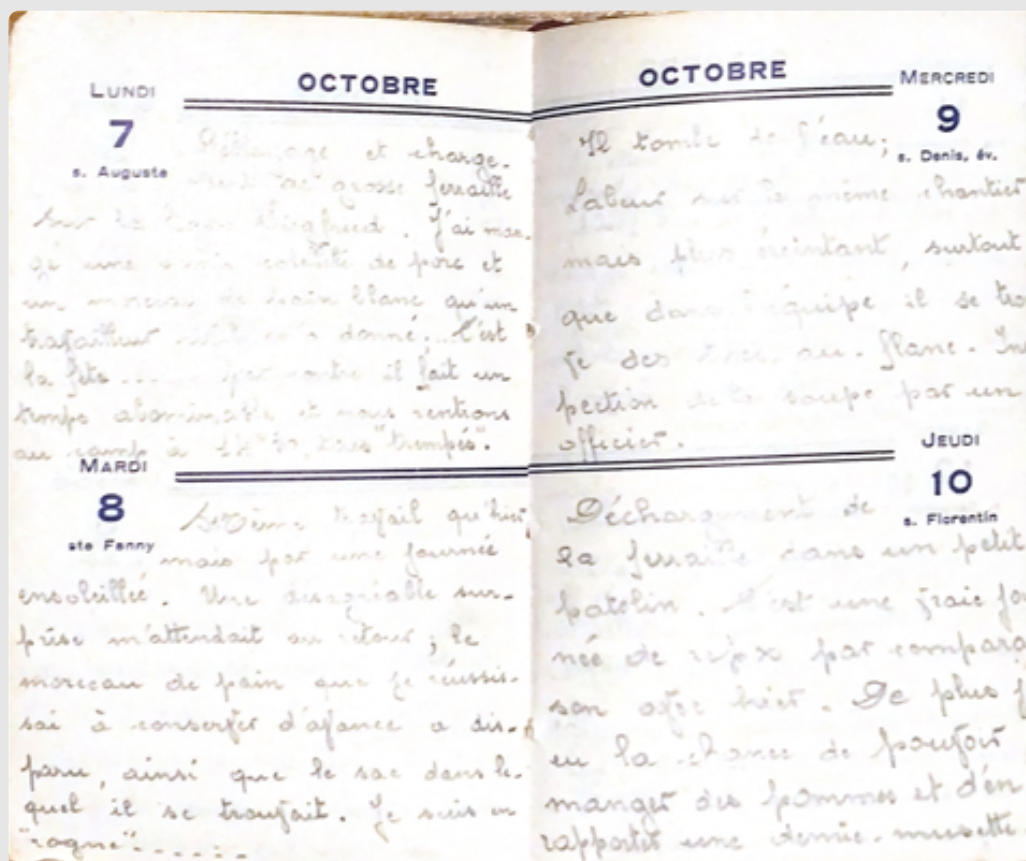 LUNDI
OCTOBRE
7
s. Auguste
et charge-
grosse ferraille
sur la Siegfried. J'ai man-
gé une de porc et
un morceau de pain blanc qu'un
travailleur donné... C'est
la fête ..... par contre il fait un
temps abominable et nous rentrions
au camp à tous "trempés".
MARDI
8
ste Fanny
Même travail qu'hier
mais par une journée
ensoleillée. Une désagréable sur-
prise m'attendait au retour ; le
morceau de pain que je réussis-
sai à conserver d'avance a dis-
paru, ainsi que le sac dans le-
quel il se trouvait. Je suis en
"rogne".......
OCTOBRE
MERCREDI
9
s. Denis, év.
Il tombe de l'eau ;
Labeur sur le même chantier
mais plus éreintant, surtout
que dans l'équipe il se trou
ve des tire-au-flanc. Ins
pection de la soupe par un
officier.
JEUDI
10
s. Florentin
Déchargement de
la ferraille dans un petit
patelin. C'est une vraie jou
née de repos par compara
son avec hier. De plus j
eu la chance de pouvoir
manger des pommes et d'en
rapporter une demie-musette